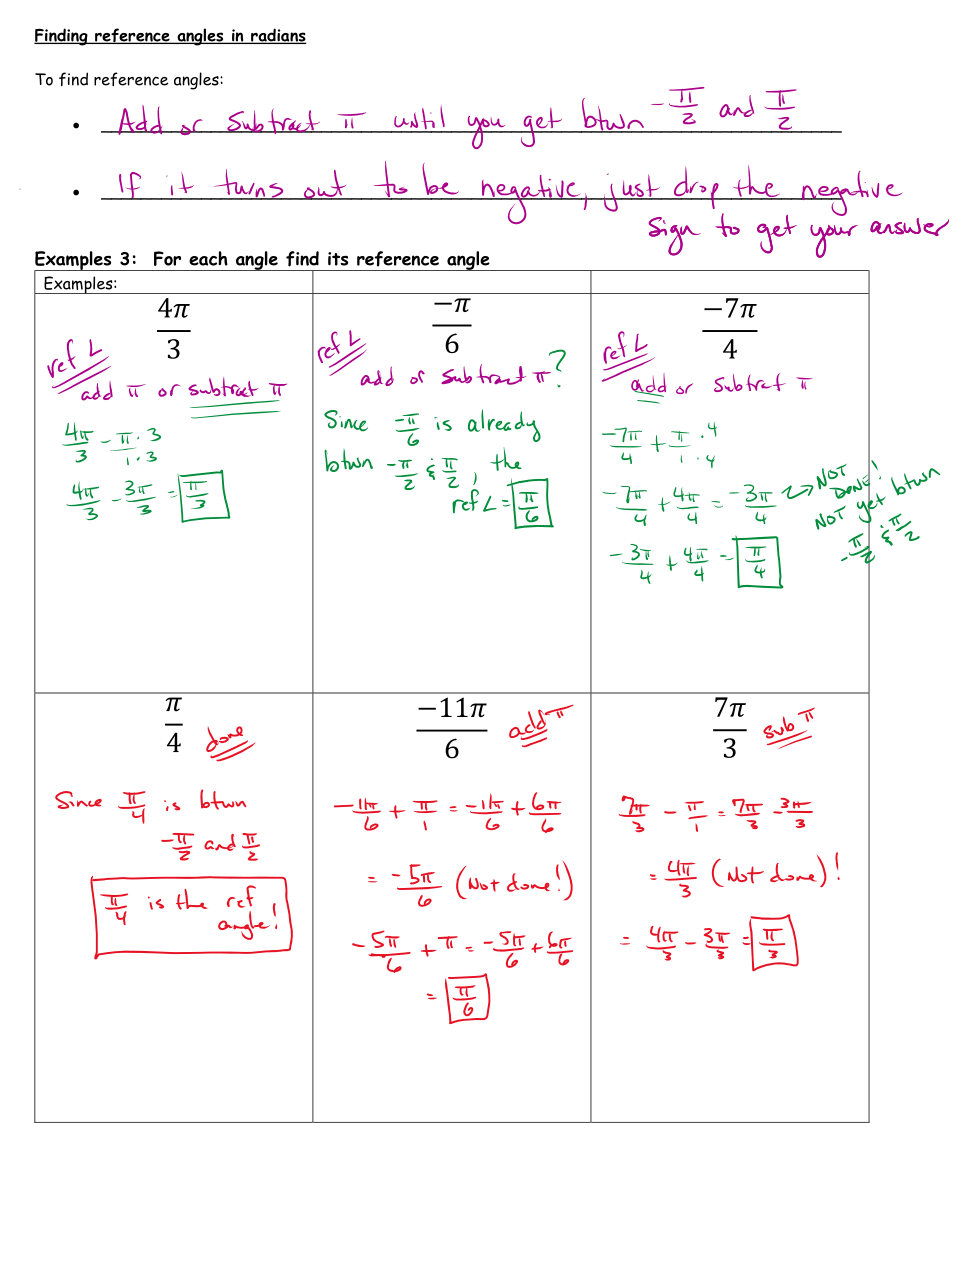 Finding reference angles in radians
To find reference angles:
• Add or Subtract π until you get btwn -π/2 and π/2
• If it turns out to be negative, just drop the negative
sign to get your answer
Examples 3: For each angle find its reference angle
Examples:
4π/3
ref ∠
add π or subtract π
4π/3 - π/1 · 3/3
4π/3 - 3π/3 = π/3
-π/6
ref ∠
add or subtract π?
Since -π/6 is already
btwn -π/2 & π/2, the
ref ∠ = π/6
-7π/4
ref ∠
add or subtract π
-7π/4 + π/1 · 4/4
-7π/4 + 4π/4 = -3π/4 → NOT
DONE!
NOT yet btwn
-π/2 & π/2
-3π/4 + 4π/4 = π/4
π/4
done
Since π/4 is btwn
-π/2 and π/2
π/4 is the ref
angle!
-11π/6
add π
-11π/6 + π/1 = -11π/6 + 6π/6
= -5π/6 (Not done!)
-5π/6 + π = -5π/6 + 6π/6
= π/6
7π/3
sub π
7π/3 - π/1 = 7π/3 - 3π/3
= 4π/3 (Not done)!
= 4π/3 - 3π/3 = π/3